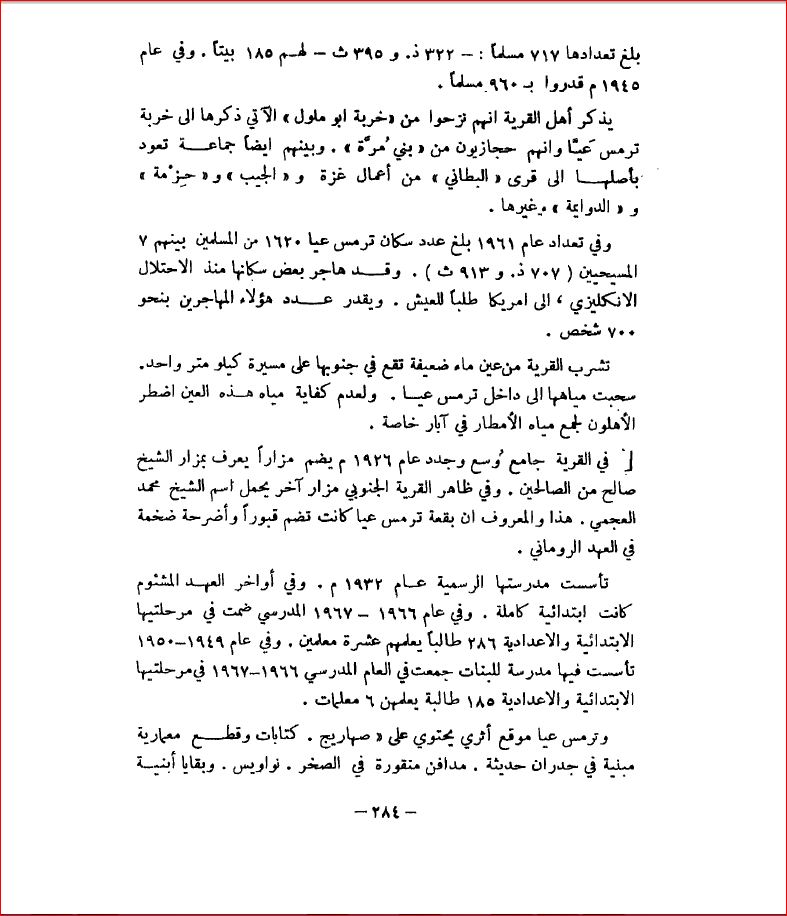 بلغ تعدادها ٧١٧ مسلماً : – ٣٢٢ ذ. و ٣٩٥ ث – لهم ١٨٥ بيتاً . وفي عام
١٩٤٥ م قدروا بـ ٩٦٠ مسلماً .
يذكر أهل القرية انهم نزحوا من «خربة ابو ملول» الآتي ذكرها الى خربة
ترمس عيّا وانهم حجازيون من « بني مُرَّة » . وبينهم ايضاً جماعة تعود
بأصلها الى قرى « البطاني » من أعمال غزة و « الجيب » و « حِزْمة »
و « الدوايمة » وغيرها .
وفي تعداد عام ١٩٦١ بلغ عدد سكان ترمس عيا ١٦٢٠ من المسلمين بينهم ٧
المسيحيين ( ٧٠٧ ذ. و ٩١٣ ث ) . وقد هاجر بعض سكانها منذ الاحتلال
الانكليزي ، الى امريكا طلباً للعيش . ويقدر عدد هؤلاء المهاجرين بنحو
٧٠٠ شخص .
تشرب القرية من عين ماء ضعيفة تقع في جنوبها على مسيرة كيلو متر واحد.
سحبت مياهها الى داخل ترمس عيا . ولعدم كفاية مياه هذه العين اضطر
الأهلون لجمع مياه الأمطار في آبار خاصة .
في القرية جامع وُسع وجدد عام ١٩٢٦ م يضم مزاراً يعرف بمزار الشيخ
صالح من الصالحين . وفي ظاهر القرية الجنوبي مزار آخر يحمل اسم الشيخ محمد
العجمي . هذا والمعروف ان بقعة ترمس عيا كانت تضم قبوراً وأضرحة ضخمة
في العهد الروماني .
تأسست مدرستها الرسمية عام ١٩٣٢ م . وفي أواخر العهد المشئوم
كانت ابتدائية كاملة . وفي عام ١٩٦٦ – ١٩٦٧ المدرسي ضمت في مرحلتيها
الابتدائية والاعدادية ٢٨٦ طالباً يعلمهم عشرة معلمين . وفي عام ١٩٤٩–١٩٥٠
تأسست فيها مدرسة للبنات جمعت في العام المدرسي ١٩٦٦–١٩٦٧ في مرحلتيها
الابتدائية والاعدادية ١٨٥ طالبة يعلمهن ٦ معلمات .
وترمس عيا موقع أثري يحتوي على « صهاريج . كتابات وقطع معمارية
مبنية في جدران حديثة . مدافن منقورة في الصخر . نواويس . وبقايا أبنية
– ٢٨٤ –